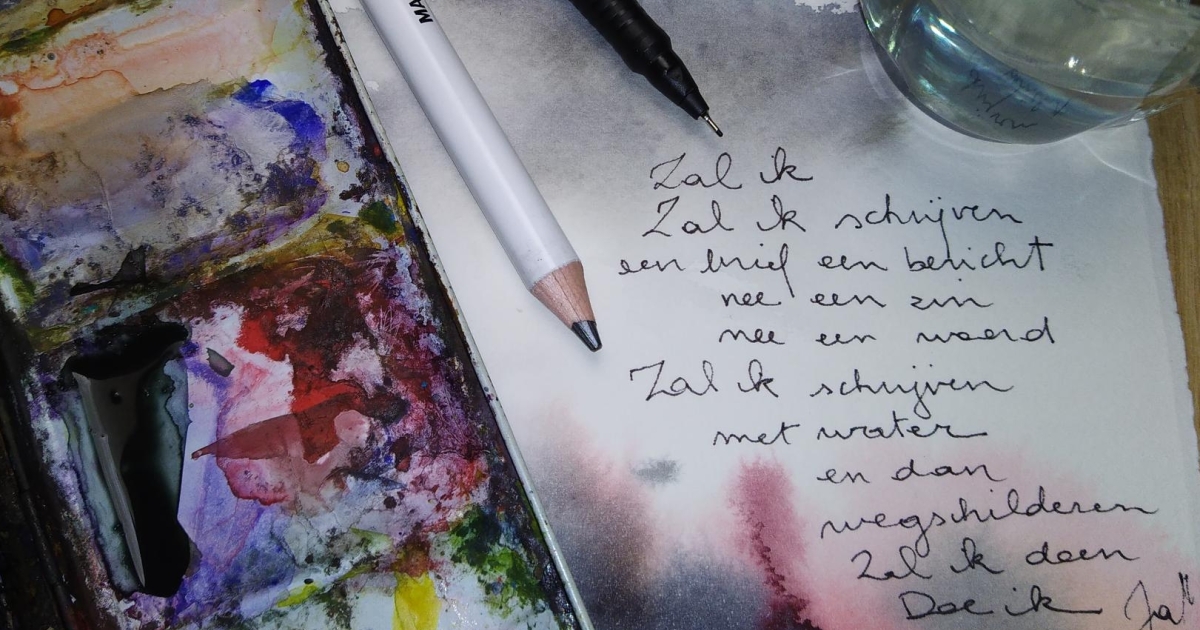 MA
Zal ik
Zal ik schrijven
een brief een bericht
nee een zin
nee een woord
Zal ik schrijven
met water
en dan
wegschilderen
Zal ik doen
Doe ik Ja